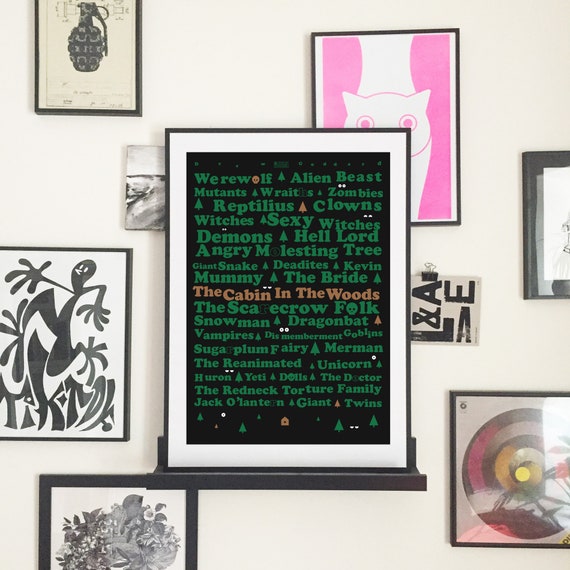 Drew Goddard
Werewolf Alien Beast
Mutants Wraiths Zombies
Reptilius Clowns
Witches Sexy Witches
Demons Hell Lord
Angry Molesting Tree
Giant Snake Deadites Kevin
Mummy The Bride
The Cabin In The Woods
The Scarecrow Folk
Snowman Dragonbat
Vampires Dismemberment Goblins
Sugarplum Fairy Merman
The Reanimated Unicorn
Huron Yeti Dolls The Doctor
The Redneck Torture Family
Jack O'lantern Giant Twins